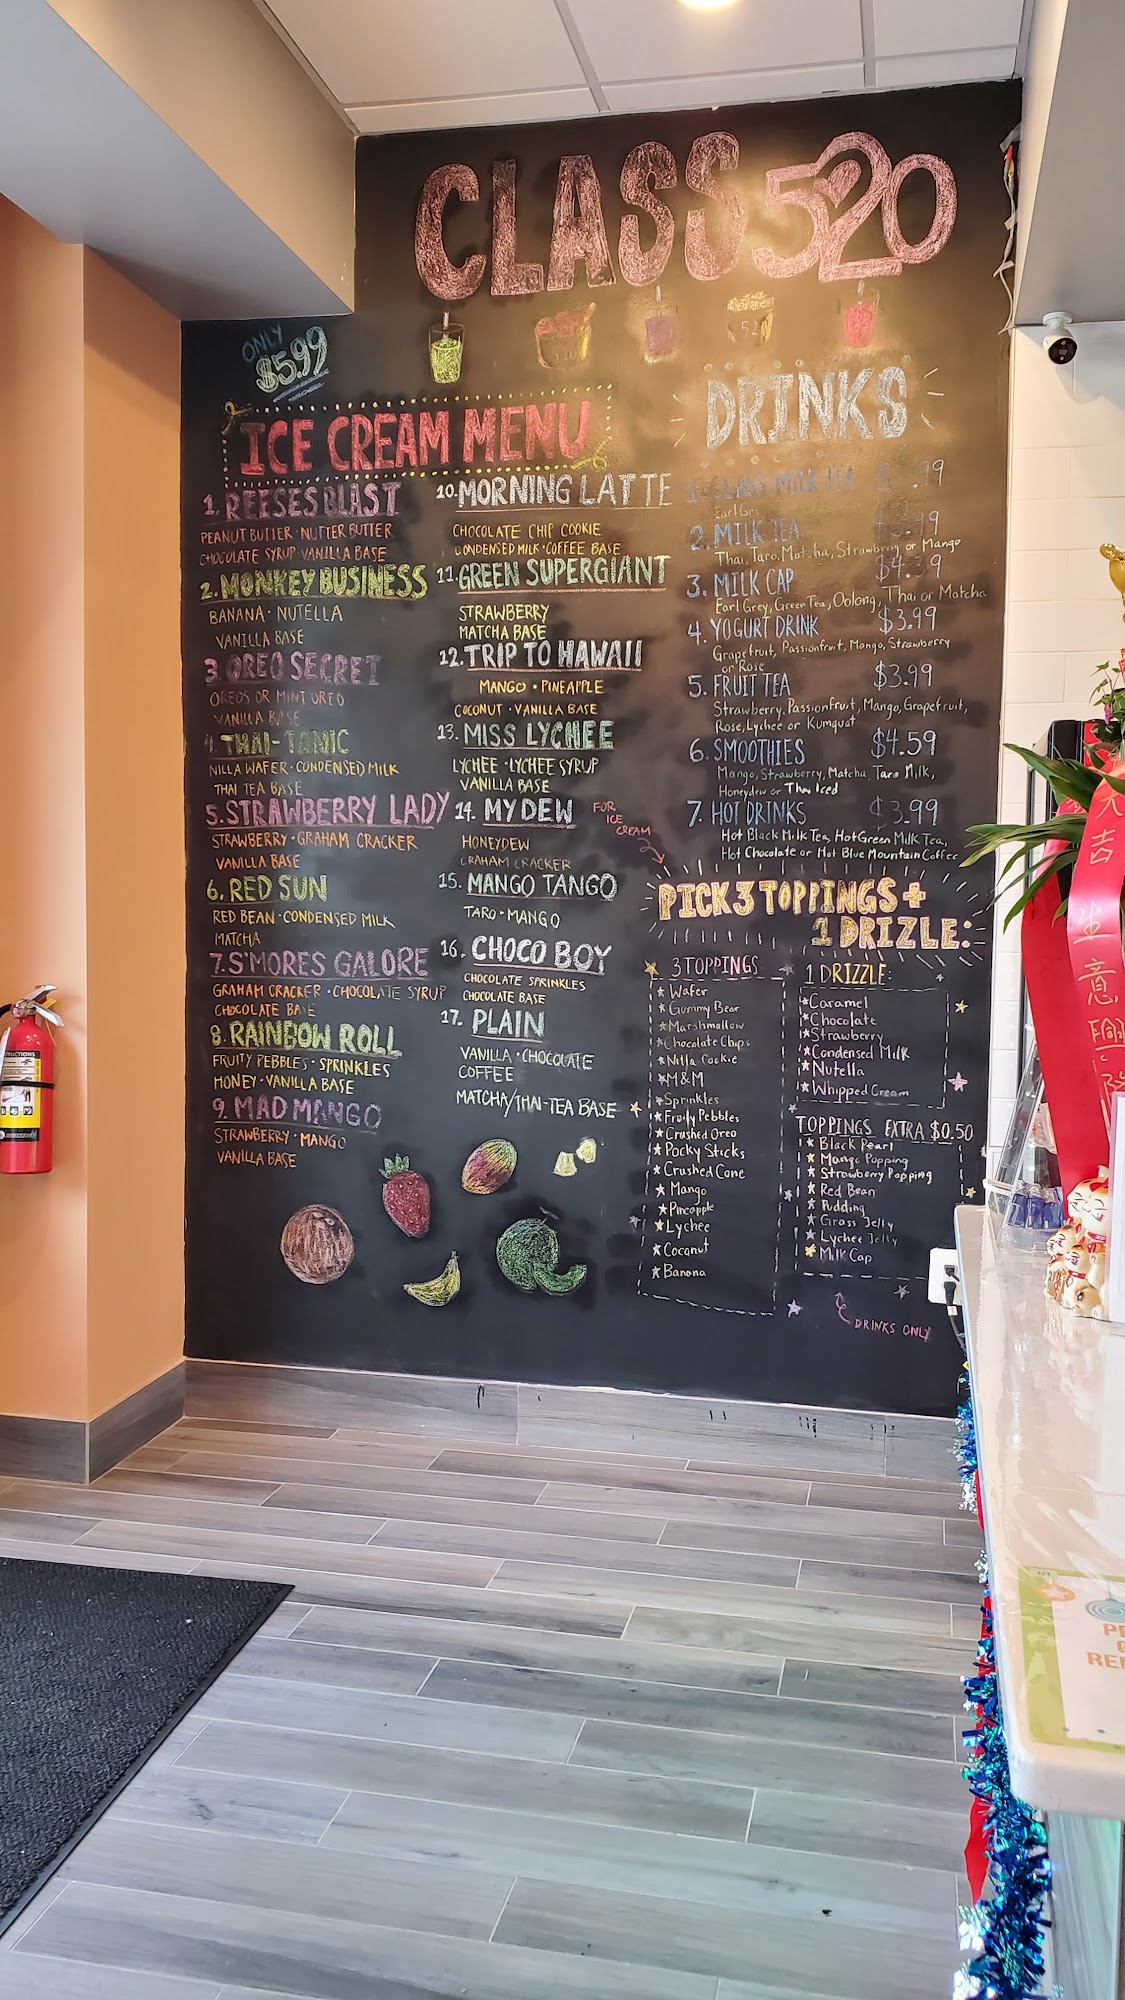 CLASS 520
520
520
ONLY
$5.99
ICE CREAM MENU
1. REESES BLAST
PEANUT BUTTER · NUTTER BUTTER
CHOCOLATE SYRUP VANILLA BASE
2. MONKEY BUSINESS
BANANA · NUTELLA
VANILLA BASE
3 OREO SECRET
OREOS OR MINT OREO
VANILLA BASE
4. THAI-TANIC
NILLA WAFER · CONDENSED MILK
THAI TEA BASE
5. STRAWBERRY LADY
STRAWBERRY · GRAHAM CRACKER
VANILLA BASE
6. RED SUN
RED BEAN · CONDENSED MILK
MATCHA
7. S'MORES GALORE
GRAHAM CRACKER · CHOCOLATE SYRUP
CHOCOLATE BASE
8. RAINBOW ROLL
FRUITY PEBBLES · SPRINKLES
HONEY · VANILLA BASE
9. MAD MANGO
STRAWBERRY · MANGO
VANILLA BASE
10. MORNING LATTE
CHOCOLATE CHIP COOKIE
CONDENSED MILK · COFFEE BASE
11. GREEN SUPERGIANT
STRAWBERRY
MATCHA BASE
12. TRIP TO HAWAII
MANGO · PINEAPPLE
COCONUT · VANILLA BASE
13. MISS LYCHEE
LYCHEE · LYCHEE SYRUP
VANILLA BASE
14. MY DEW
HONEYDEW
GRAHAM CRACKER
15. MANGO TANGO
TARO · MANGO
16. CHOCO BOY
CHOCOLATE SPRINKLES
CHOCOLATE BASE
17. PLAIN
VANILLA · CHOCOLATE
COFFEE
MATCHA/THAI-TEA BASE
DRINKS
1. CLASS MILK TEA
2. MILK TEA
Thai, Taro, Matcha, Strawberry or Mango
3. MILK CAP $4.39
Earl Grey, Green Tea, Oolong, Thai or Matcha
4. YOGURT DRINK $3.99
Grapefruit, Passionfruit, Mango, Strawberry
or Rose
5. FRUIT TEA $3.99
Strawberry, Passionfruit, Mango, Grapefruit,
Rose, Lychee or Kumquat
6. SMOOTHIES $4.59
Mango, Strawberry, Matcha, Taro Milk,
Honeydew or Thai Iced
7. HOT DRINKS $3.99
Hot Black Milk Tea, Hot Green Milk Tea,
Hot Chocolate or Hot Blue Mountain Coffee
FOR
ICE
CREAM
PICK 3 TOPPINGS +
1 DRIZLE:
3 TOPPINGS
Wafer
Gummy Bear
Marshmallow
Chocolate Chips
Nilla Cookie
M&M
Sprinkles
Fruity Pebbles
Crushed Oreo
Pocky Sticks
Crushed Cone
Mango
Pineapple
Lychee
Coconut
Banana
1 DRIZZLE:
Caramel
Chocolate
Strawberry
Condensed Milk
Nutella
Whipped Cream
TOPPINGS EXTRA $0.50
Black Pearl
Mango Popping
Strawberry Popping
Red Bean
Pudding
Grass Jelly
Lychee Jelly
Milk Cap
DRINKS ONLY
大吉
生意興隆